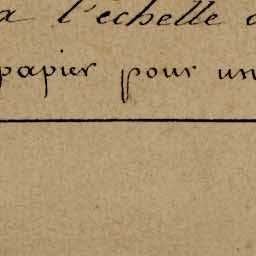 a l'échelle d
papier pour un